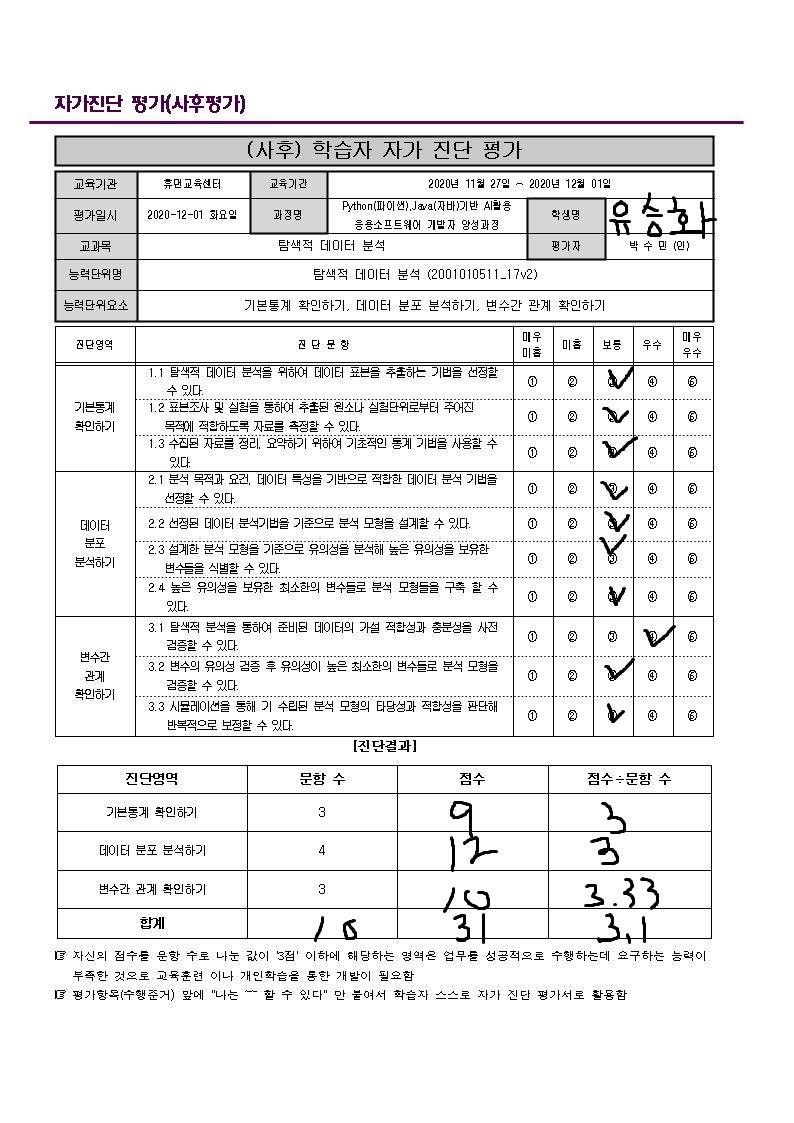 자가진단 평가(사후평가)
(사후) 학습자 자가 진단 평가
교육기관 휴먼교육센터 교육기관 2020년 11월 27일 ~ 2020년 12월 01일
평가일시 2020-12-01 화요일 과정명 Python(파이썬),Java(자바)기반 AI활용
응용소프트웨어 개발자 양성과정 학생명 유승화
교과목 탐색적 데이터 분석 평가자 박 수 민 (인)
능력단위명 탐색적 데이터 분석 (2001010511_17v2)
능력단위요소 기본통계 확인하기, 데이터 분포 분석하기, 변수간 관계 확인하기
진단영역 진 단 문 항 매우 미흡 미흡 보통 우수 매우 우수
기본통계 확인하기
1.1 탐색적 데이터 분석을 위하여 데이터 표본을 추출하는 기법을 선정할
수 있다. ① ② ③ ④ ⑤
1.2 표본조사 및 실험을 통하여 추출된 원소나 실험단위로부터 주어진
목적에 적합하도록 자료를 측정할 수 있다. ① ② ③ ④ ⑤
1.3 수집된 자료를 정리, 요약하기 위하여 기초적인 통계 기법을 사용할 수
있다. ① ② ③ ④ ⑤
데이터 분포 분석하기
2.1 분석 목적과 요건, 데이터 특성을 기반으로 적합한 데이터 분석 기법을
선정할 수 있다. ① ② ③ ④ ⑤
2.2 선정된 데이터 분석기법을 기준으로 분석 모형을 설계할 수 있다. ① ② ③ ④ ⑤
2.3 설계한 분석 모형을 기준으로 유의성을 분석해 높은 유의성을 보유한
변수들을 식별할 수 있다. ① ② ③ ④ ⑤
2.4 높은 유의성을 보유한 최소한의 변수들로 분석 모형들을 구축 할 수
있다. ① ② ③ ④ ⑤
변수간 관계 확인하기
3.1 탐색적 분석을 통하여 준비된 데이터의 가설 적합성과 충분성을 사전
검증할 수 있다. ① ② ③ ④ ⑤
3.2 변수의 유의성 검증 후 유의성이 높은 최소한의 변수들로 분석 모형을
검증할 수 있다. ① ② ③ ④ ⑤
3.3 시뮬레이션을 통해 기 수립된 분석 모형의 타당성과 적합성을 판단해
반복적으로 보정할 수 있다. ① ② ③ ④ ⑤
[진단결과]
진단영역 문항 수 점수 점수÷문항 수
기본통계 확인하기 3 9 3
데이터 분포 분석하기 4 12 3
변수간 관계 확인하기 3 10 3.33
합계 10 31 3.1
☞ 자신의 점수를 문항 수로 나눈 값이 '3점' 이하에 해당하는 영역은 업무를 성공적으로 수행하는데 요구하는 능력이
부족한 것으로 교육훈련 이나 개인학습을 통한 개발이 필요함
☞ 평가항목(수행준거) 앞에 "나는 ~~ 할 수 있다" 만 붙여서 학습자 스스로 자가 진단 평가서로 활용함